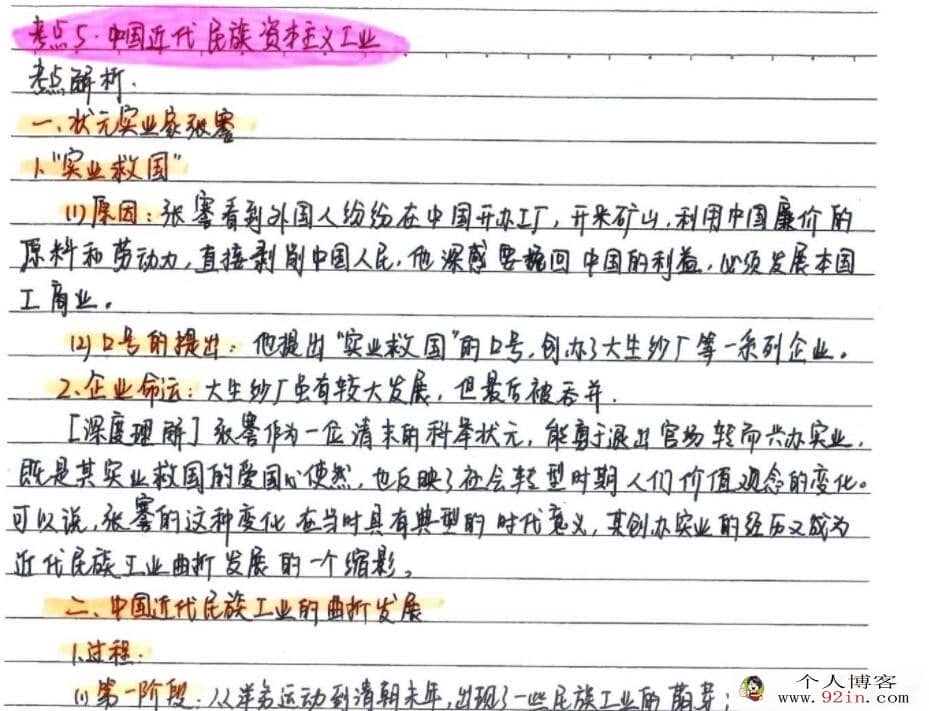 考点5.中国近代民族资本主义工业
考点解析.
一、状元实业家张謇
1."实业救国"
(1)原因:张謇看到外国人纷纷在中国开办工厂,开采矿山,利用中国廉价的
原料和劳动力,直接剥削中国人民,他深感要挽回中国的利益,必须发展本国
工商业。
(2)口号的提出:他提出"实业救国"的口号,创办了大生纱厂等一系列企业。
2.企业命运:大生纱厂虽有较大发展,但最后被吞并.
[深度理解]张謇作为一位清末的科举状元,能勇于退出官场转而兴办实业,
既是其实业救国的爱国心使然,也反映了社会转型时期人们价值观念的变化。
可以说,张謇的这种变化在当时具有典型的时代意义,其创办实业的经历又成为
近代民族工业曲折发展的一个缩影。
二、中国近代民族工业的曲折发展
1.过程:
(1)第一阶段:从洋务运动到清朝末年,出现了一些民族工业的萌芽;
个人博客
www.92in.com